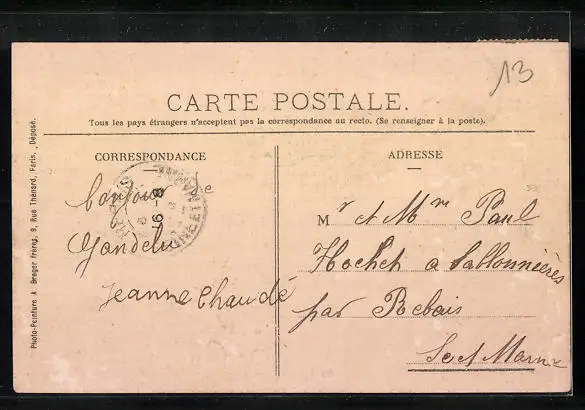 13
CARTE POSTALE.
Tous les pays étrangers n'acceptent pas la correspondance au recto. (Se renseigner à la poste).
CORRESPONDANCE
bonjour de
Gandelu
Jeanne Chaudé
ADRESSE
Mr et Mme Paul
Hochet a Sablonnières
par Rebais
Se et Marne
Photo-Peinture A. Breger frères, 9, Rue Thénard, Paris. Déposé.